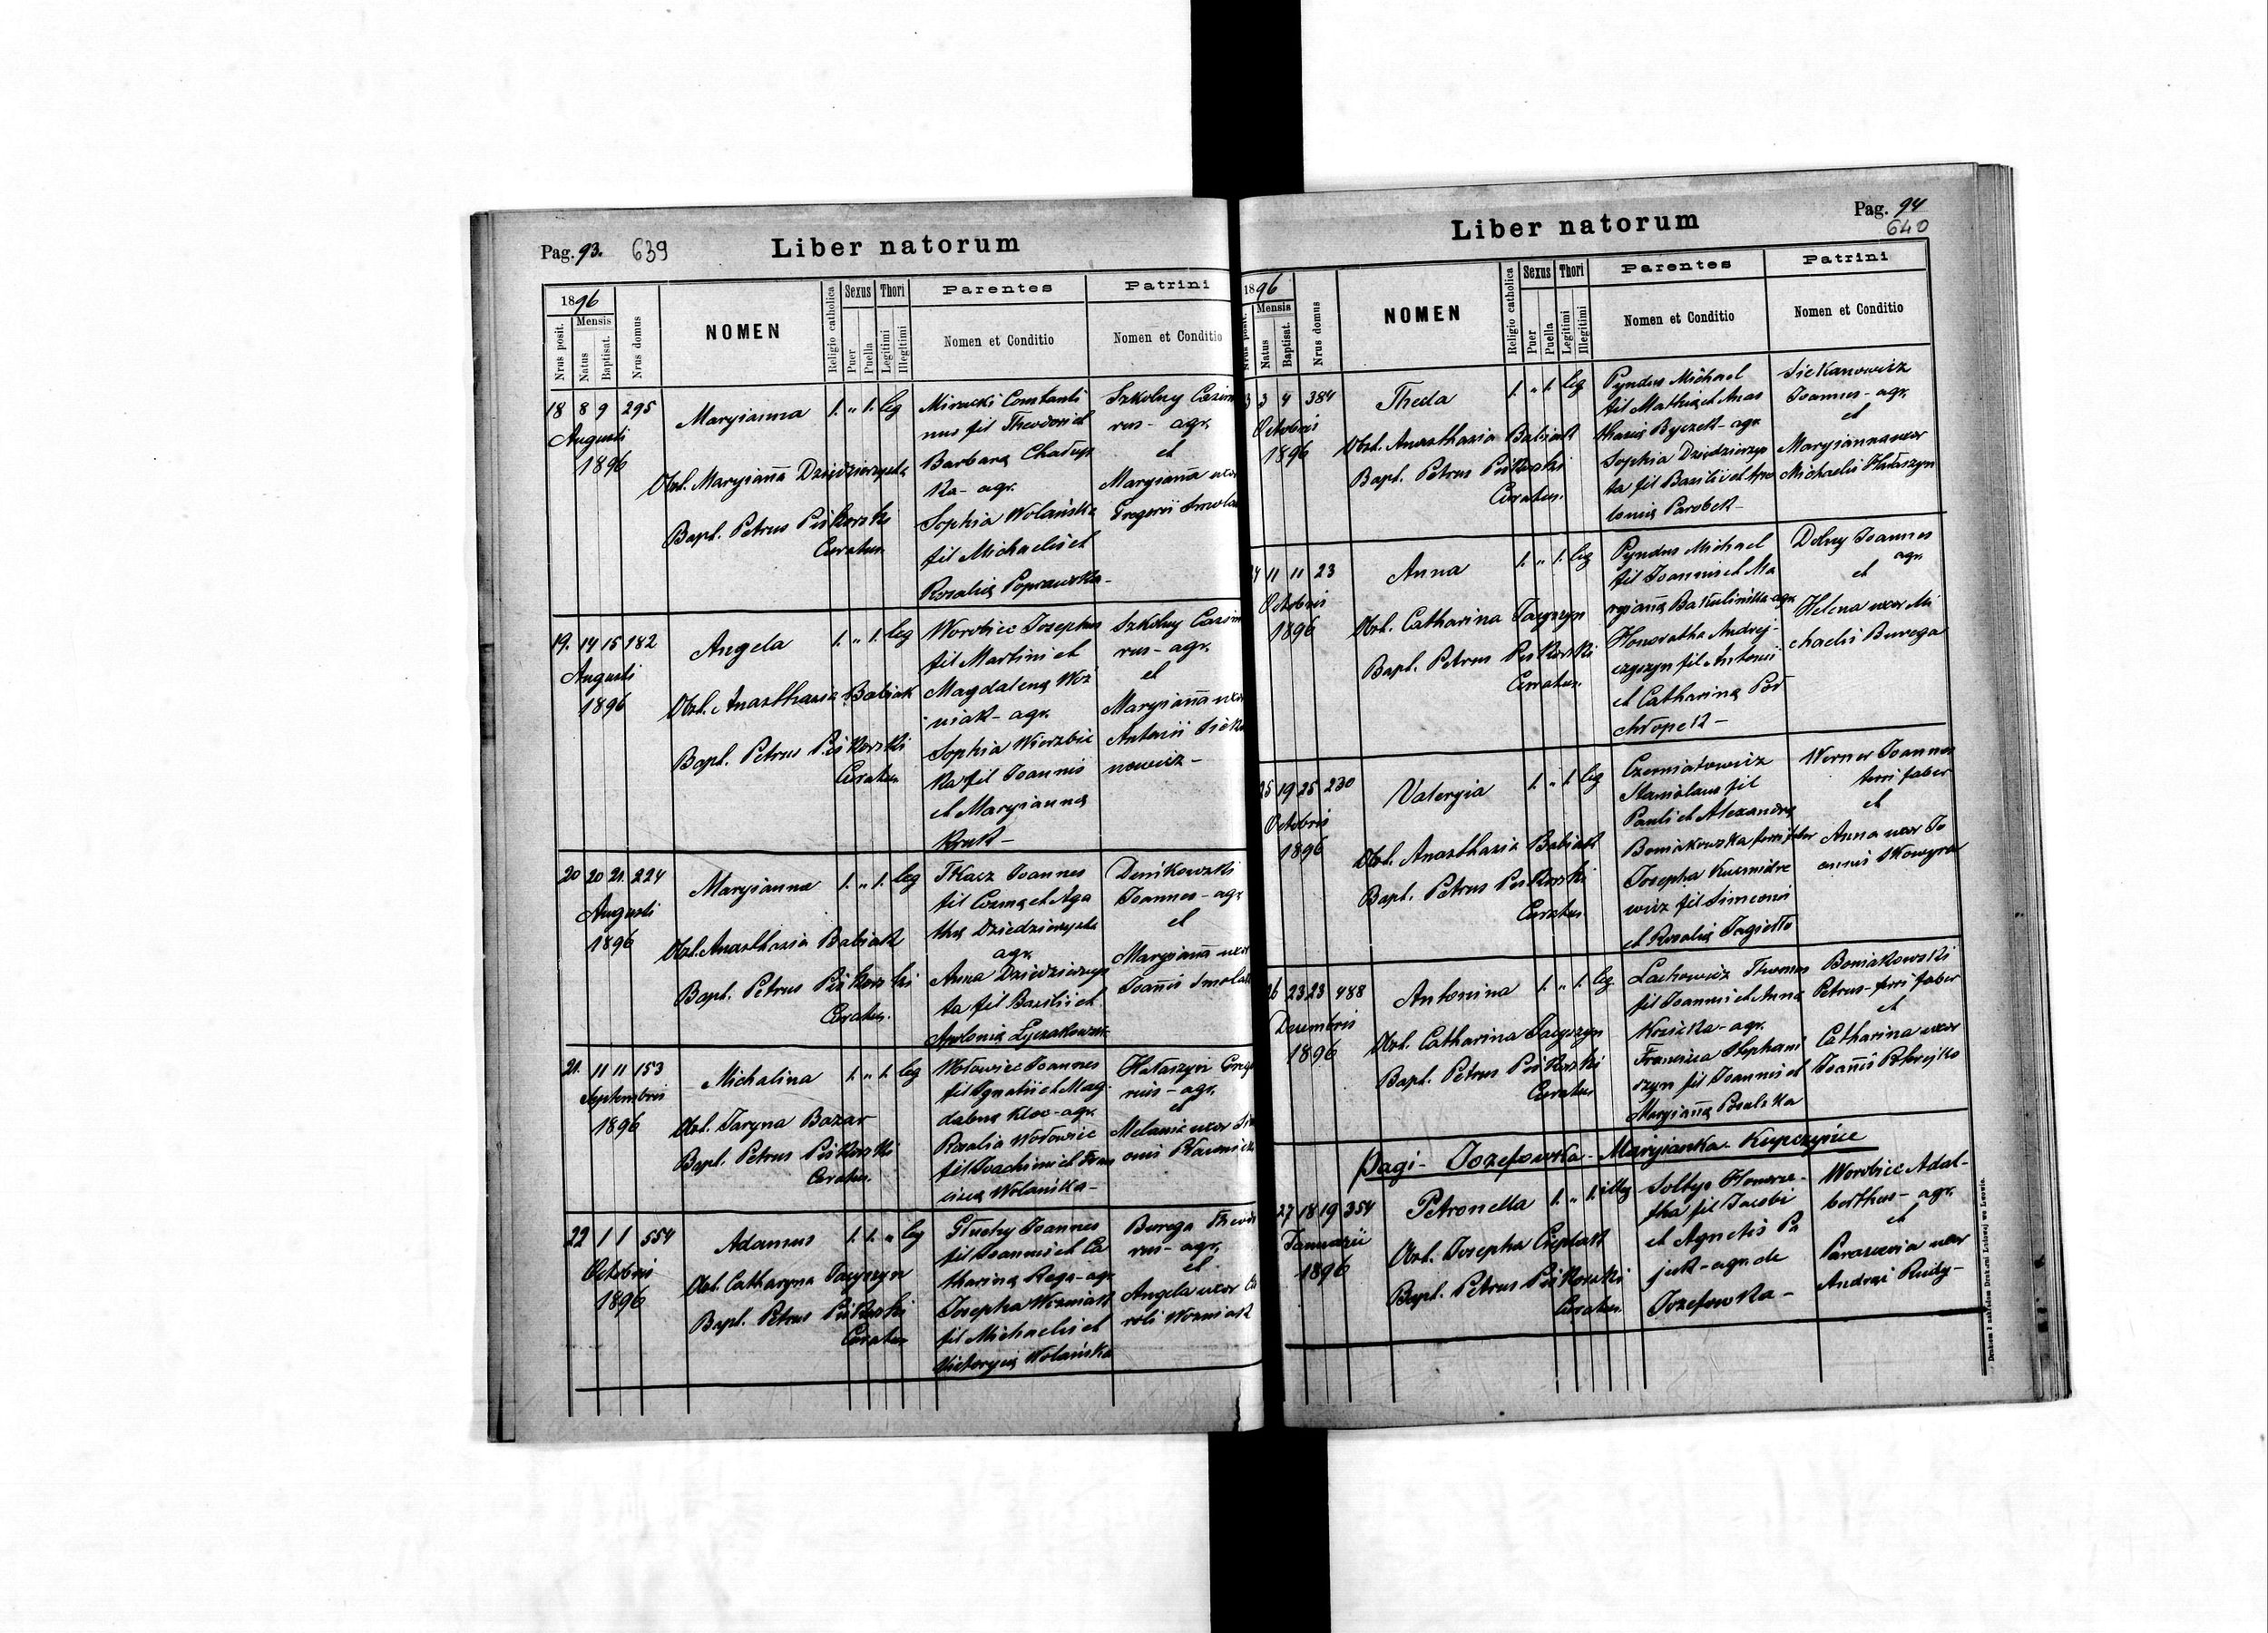 Pag. 93. 639
Liber natorum
1896
Nrus posit.
Mensis
Natus
Baptisat.
Nrus domus
NOMEN
Religio catholica
Sexus
Puer
Puella
Thori
Legitimi
Illegitimi
Parentes
Nomen et Conditio
Patrini
Nomen et Conditio
18 8 9 295
Augusti
1896
Maryianna
1. " 1. leg
Obst. Maryiaña Dziedzierzynska
Bapt. Petrus Piskorski
Curatus.
Miracki Constanti
nus fil Theodori et
Barbara Chałup
ka - agr.
Sophia Wolańska
fil Michaelis et
Rosalia Poprawska -
Szkolny Casim
rus - agr.
et
Maryiaña uxor
Gregorii Smola
19. 14 15 182
Augusti
1896
Angela
1. " 1. leg
Obst. Anasthasia Babiak
Bapt. Petrus Piskorski
Curatus
Worobiec Josephus
fil Martini et
Magdalena Woź
niak - agr.
Sophia Wierzbic
ka fil Joannis
et Maryianna
Kruk -
Szkolny Casim
rus - agr.
et
Maryiaña uxor
Antonii Sieka
nowicz -
20 20 21. 224
Augusti
1896
Maryianna
1. " 1. leg
Obst. Anasthasia Babiak
Bapt. Petrus Piskorski
Curatus.
Tkacz Joannes
fil Cosma et Aga
tha
agr.
Anna
ta fil Basilii et
Apolonia
Denikowski
Joannes - agr
et
Maryiaña uxor
Joañis Smola
21. 11 11 153
Septembris
1896
Michalina
1. " 1. leg
Obst. Taryna Bazar
Bapt. Petrus Piskorski
Curatus.
Wołowiec Joannes
fil Ignatii et Mag
dalena Kloc - agr.
Rosalia Wołowiec
fil Joachimi et Fran
cisca Wolańska -
Hałaszyn Grego
rius - agr.
et
Melania uxor Sim
onis
22 1 1 554
Octobris
1896
Adamus
1. 1. " leg
Obst. Catharyna Tacyszyn
Bapt. Petrus Piskorski
Curatus
Głuchy Joannes
fil Joannis et Ca
tharina Rega - agr.
Josepha Woźniak
fil Michaelis et
Victoryia Wolańska
Burega Theodo
rus - agr.
et
Angela uxor Ca
roli Woźniak
Liber natorum
Pag. 94
640
1896
Nrus posit.
Mensis
Natus
Baptisat.
Nrus domus
NOMEN
Religio catholica
Sexus
Puer
Puella
Thori
Legitimi
Illegitimi
Parentes
Nomen et Conditio
Patrini
Nomen et Conditio
3 3 4 384
Octobris
1896
Theda
1. " 1. leg
Obst. Anasthasia Babiak
Bapt. Petrus Piskorski
Curatus.
Pyndus Michael
fil Mathia et Anas
thasia Byczek - agr
Sophia Dziedzierzyn
ta fil Basilii et Apo
lonia Parobek -
Siekanowicz
Joannes - agr.
et
Maryianna uxor
Michaelis Hałaszyn
24 11 11 23
Octobris
1896
Anna
1. " 1. leg
Obst. Catharina Tacyszyn
Bapt. Petrus Piskorski
Curatus.
Pyndus Michael
fil Joannis et Ma
ryiaña Bakulinska - agr
Honoratha Andrej -
czyszyn fil Antonii
et Catharina Pod
chropek -
Dolny Joannes
agr.
et
Helena uxor Mi
chaelis Burega
25 19 25 230
Octobris
1896
Valeryia
1. " 1. leg
Obst. Anasthasia Babiak
Bapt. Petrus Piskorski
Curatus
Czerniatowicz
Stanislaus fil
Pauli et Alexandra
Boniakowska ferri faber
Josepha
wicz fil Simeonis
et Rosalia Jagiełło
Werner Joannes
ferri faber
et
Anna uxor Jo
annis Skowyra
26 23 23 488
Decembris
1896
Antonina
1. " 1. leg
Obst. Catharina Tacyszyn
Bapt. Petrus Piskorski
Curatus
Lachowicz Thomas
fil Joannis et Anna
- agr.
Francisca Stephani
szyn fil Joannis et
Maryiaña
Boniakowski
Petrus - ferri faber
et
Catharina uxor
Joañis
Pagi - Jozefowka - Maryianka - Kupczyńce
27 18 19 354
Januarii
1896
Petronella
1. " 1. illeg
Obst. Josepha Cieplak
Bapt. Petrus Piskorski
Curatus.
Soltys Honora -
tha fil Jacobi
et Agnetis Pa
juk - agr. de
Jozefowka -
Worobiec Adal -
berthus - agr.
et
Parascevia uxor
Andrei Rudy -
Drukiem i nakładem Drukarni Ludowej we Lwowie.